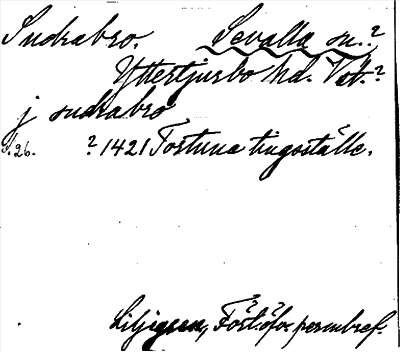 Sudrabro. Sevalla sn.?
Yttertjurbo hd. Vstm.?
j sudrabro
s. 26. ? 1421 Tortuna tingställe.
Liljegren, Fört. öfver permbref.